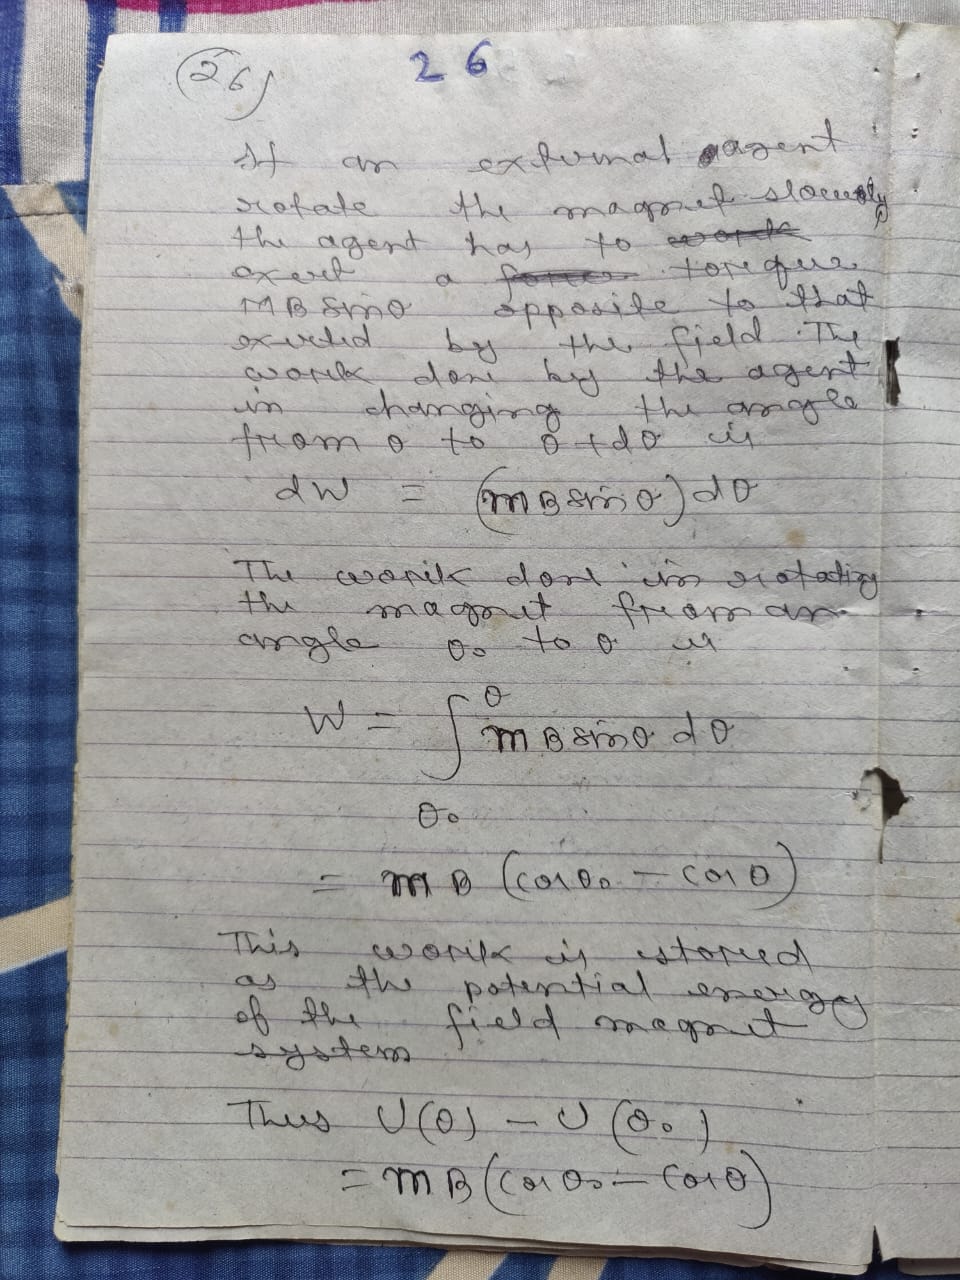 (26)
26
If an external agent
rotate the magnet slowly
the agent has to work
exert a force torque
MB sinθ opposite to that
exerted by the field. The
work done by the agent
in changing the angle
from θ to θ + dθ is
dW = (MB sin θ) dθ
The work done in rotating
the magnet from an
angle θ₀ to θ is
W = ∫ MB sinθ dθ
θ
θ₀
= MB (cos θ₀ – cos θ)
This work is stored
as the potential energy
of the field magnet
system
Thus U(θ) – U(θ₀)
= MB (cos θ₀ – cos θ)